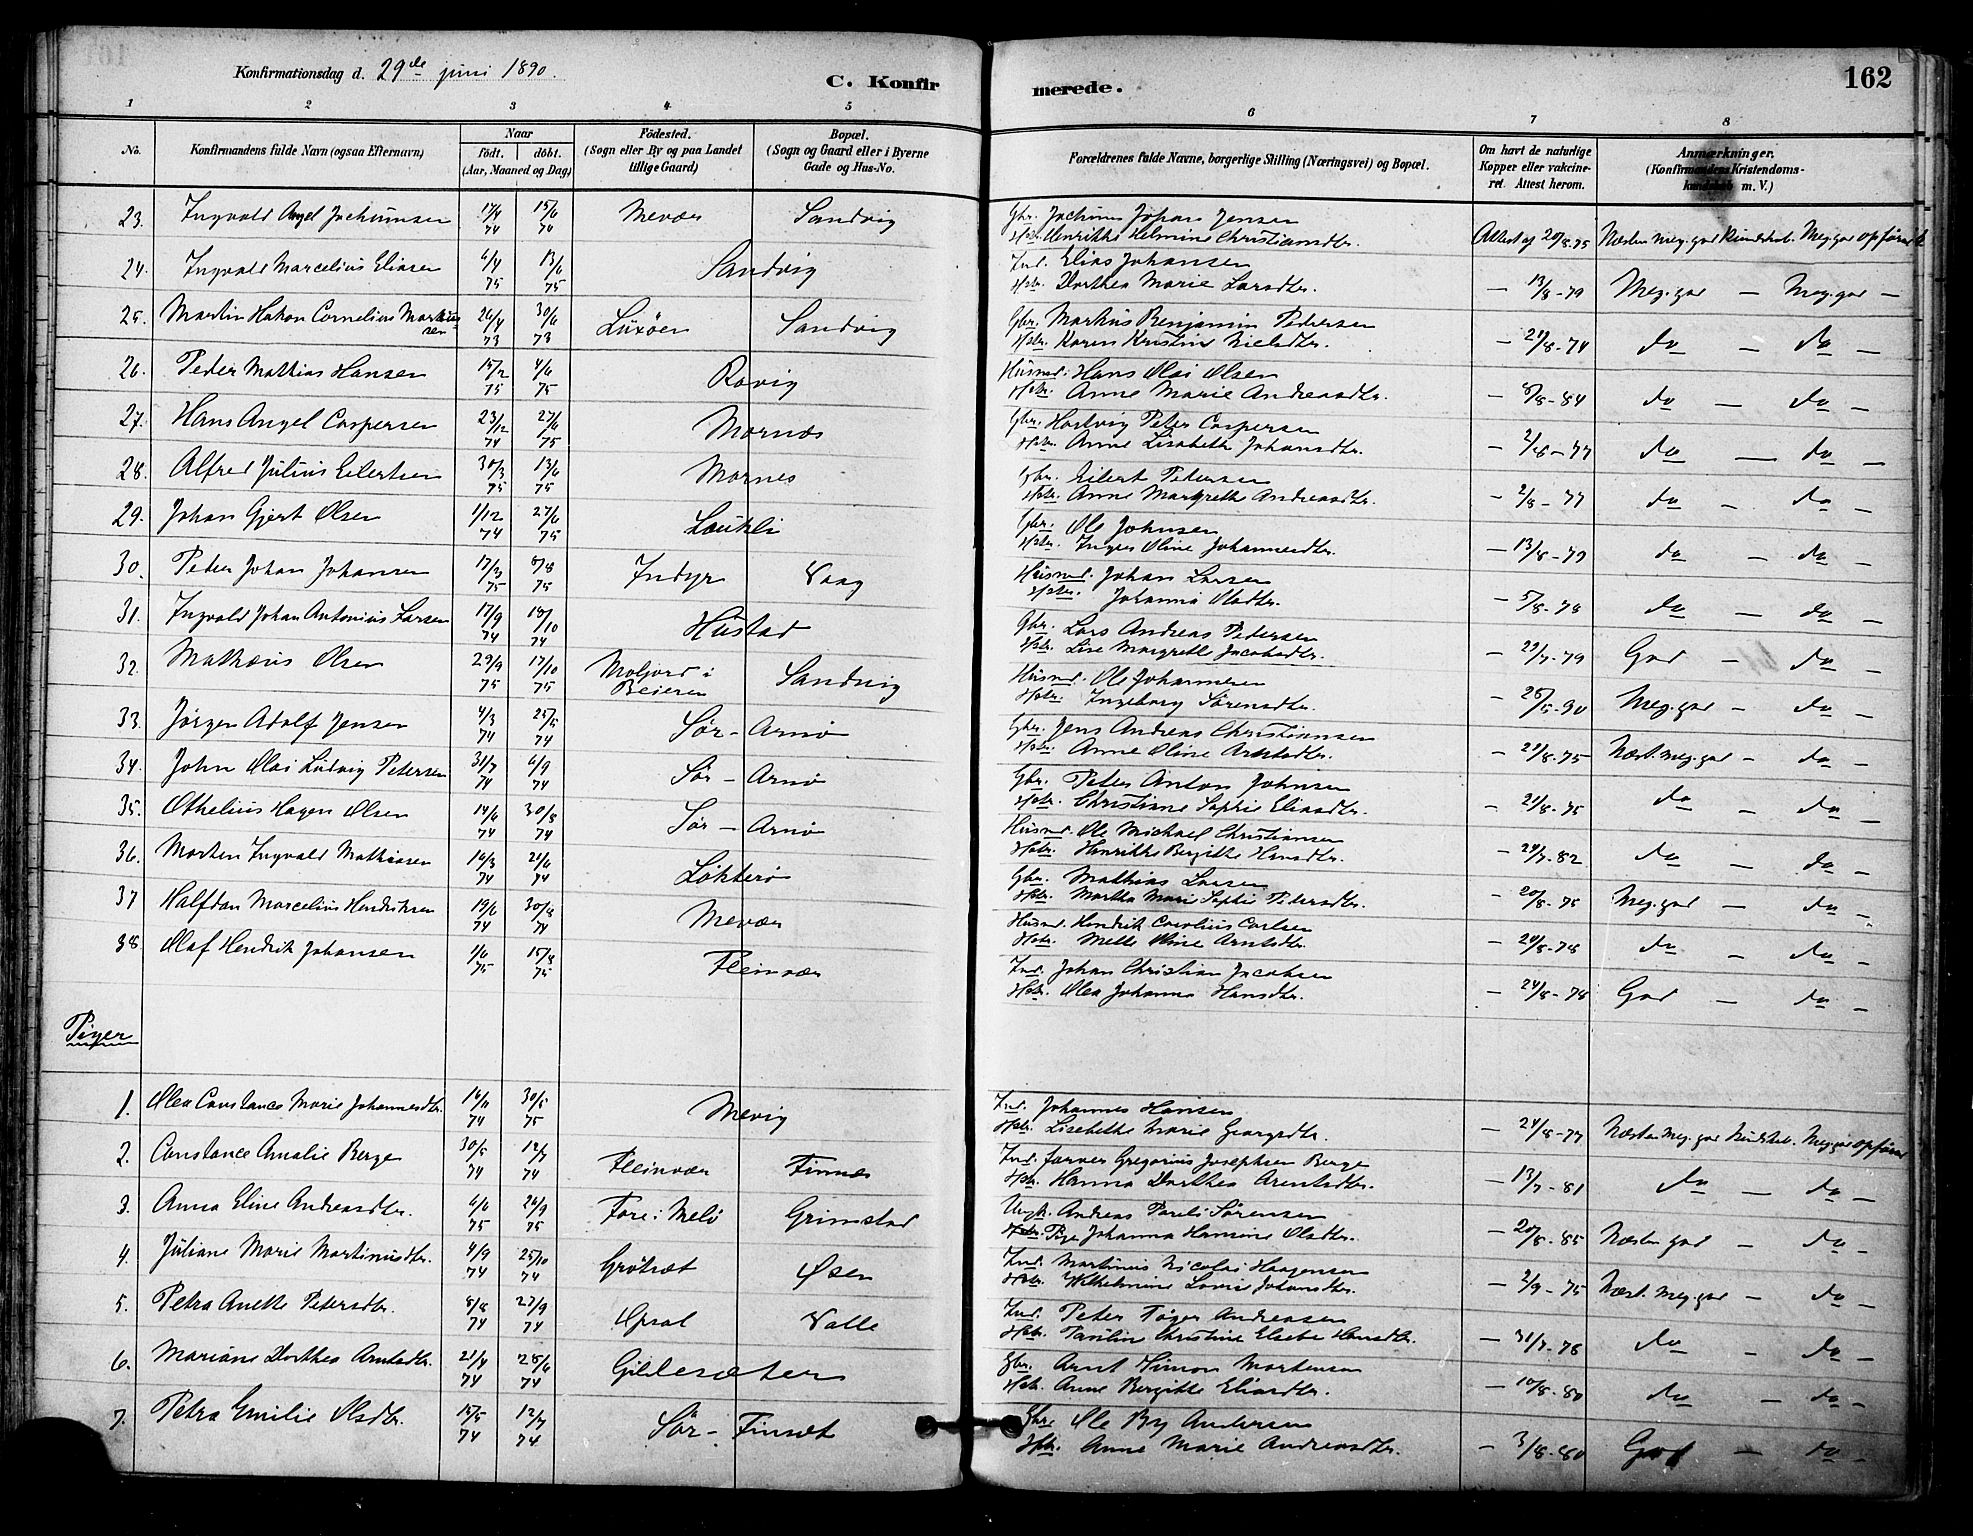 Konfirmationsdag d. 29de juni 1890.
C. Konfirmerede.
162
1 2 3 4 5 6 7 8
No.
Konfirmandens fulde Navn (ogsaa Efternavn)
Naar
födt. döbt.
(Aar, Maaned og Dag)
Födested.
(Sogn eller By og paa Landet
tillige Gaard)
Bopæl.
(Sogn og Gaard eller i Byerne
Gade og Hus-No.
Forældrenes fulde Navne, borgerlige Stilling (Næringsvei) og Bopæl.
Om havt de naturlige
Kopper eller vakcine-
ret. Attest herom.
Anmærkninger.
(Konfirmandens Kristendoms-
kundskab m. V.)
23. Ingvald Angel Jachimsen 17/4 74 15/6 74 Mevær Sandvig Gbr. Jachim Johan Jensen
Hstr. Henrikke Helmine Christiansdtr. Attest af 20/8-75 Næsten meg.god Kundskab. Meg.god opførsel
24. Ingvald Marcelius Eliasen 6/4 75 13/6 75 Sandvig Ind. Elias Johansen
Hstr. Dorthea Marie Larsdtr. — 13/8-79 Meg.god — Meg.god —
25. Martin Hakon Cornelius Markussen 26/4 73 30/6 73 Luxöen Sandvig Gbr. Markus Benjamin Pedersen
Hstr. Karen Kristine Nielsdtr. — 21/8-74 do — do —
26. Peder Mathias Hansen 15/2 75 4/6 75 Røvig Husmd. Hans Olai Olsen
Hstr. Anne Marie Andreasdtr. — 8/8-84 do — do —
27. Hans Angel Caspersen 23/12 74 27/6 75 Mornes Gbr. Hartvig Peter Caspersen
Hstr. Anne Lisabeth Johansdtr. — 2/8-77 do — do —
28. Alfred Julius Eilertsen 30/3 75 13/6 75 Mornes Gbr. Eilert Petersen
Hstr. Anne Margrethe Andreasdtr. — 2/8-77 do — do —
29. Johan Gjert Olsen 1/12 74 27/6 75 Laukli Gbr. Ole Johnsen
Hstr. Inger Oline Johannesdtr. — 13/8-79 do — do —
30. Peder Johan Johansen 17/3 75 8/8 75 Indyr Vaag Husmd. Johan Larsen
Hstr. Johanna Olsdtr. — 5/8-78 do — do —
31. Ingvald Johan Antonius Larsen 17/9 74 18/10 74 Hustad Gbr. Lars Andreas Pedersen
Hstr. Lise Margrethe Jacobsdtr. — 29/7-79 God — do —
32. Mathæus Olsen 29/9 75 17/10 75 Moljord i Beieren Sandvig Husmd. Ole Johannesen
Hstr. Ingeborg Sørensdtr. — 26/5-90 Meg.god — do —
33. Jørgen Adolf Jensen 4/3 74 25/5 74 Sør-Arnø Gbr. Jens Andreas Christiansen
Hstr. Anne Oline Arntsdtr. — 21/8-75 Næst.meg.god — do —
34. John Olai Ludvig Petersen 31/7 74 6/9 74 Sør-Arnø Gbr. Peter Anton Johnsen
Hstr. Christiane Sophie Eliasdtr. — 21/8-75 do — do —
35. Othelius Hagen Olsen 14/6 74 30/8 74 Sør-Arnø Husmd. Ole Michael Christiansen
Hstr. Henrikke Bergitte Hansdtr. — 24/7-82 do — do —
36. Morten Ingvald Mathiasen 16/3 74 21/6 74 Løkterø Gbr. Mathias Larsen
Hstr. Martha Marie Sophie Pedersdtr. — 20/8-75 Meg.god — do —
37 Halfdan Marcelius Hendriksen 19/6 74 30/8 74 Mevær Husmd. Hendrik Carolius Carlsen
Hstr. Mette Oline Arntsdtr. — 24/8-78 do — do —
38. Olaf Hendrik Johansen 1/6 75 15/8 75 Fleinvær Ind. Johan Christian Jacobsen
Hstr. Olea Johanna Hansdtr. — 24/8-78 God — do —
Piger
1. Olea Constance Marie Johannesdtr. 16/11 74 30/5 75 Mevig Ind. Johannes Hansen
Hstr. Lisebethe Marie Georgsdtr. — 24/8-77 Næsten meg.god Kundskab. Meg.god opførsel
2. Constance Amalie Berge 30/5 74 12/7 74 Fleinvær Finnes Ind. Farver Gregorius Josephsen Berge
Hstr. Hanna Dorthea Arentsdtr. — 13/7-81 do — do —
3. Anna Eline Andreasdtr. 6/6 75 26/9 75 Fore i Melö Grimstad Ungk. Andreas Pareli Sørensen
Pige Johanna Hansine Olsdtr. — 20/8-85 Næsten god — do —
4. Juliane Marie Martinusdtr. 4/9 74 25/10 74 Grötræt Øsen Ind. Martinus Nicolai Haagensen
Hstr. Wilhelmine Lovise Johansdtr. — 2/9-75 Næst.meg.god — do —
5. Petra Anette Petersdtr. 8/8 74 27/9 74 Opsal Valle Ind. Peter Føger Andreasen
Hstr. Pauline Christine Elsebe Hansdtr. — 31/7-78 do — do —
6. Mariane Dorthea Arntsdtr. 21/4 74 28/6 74 Gildesæter Gbr. Arnt Simon Mortensen
Hstr. Anne Bergitte Eliasdtr. — 10/8-80 do — do —
7. Petra Emilie Olsdtr. 15/5 74 12/7 74 Sör-Finset Gbr. Ole By Andersen
Hstr. Anne Marie Andreasdtr. — 3/8-80 God — do —